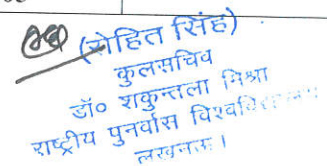 (रोहित सिंह)
कुलसचिव
डॉ० शकुन्तला मिश्रा
राष्ट्रीय पुनर्वास
लखनऊ।